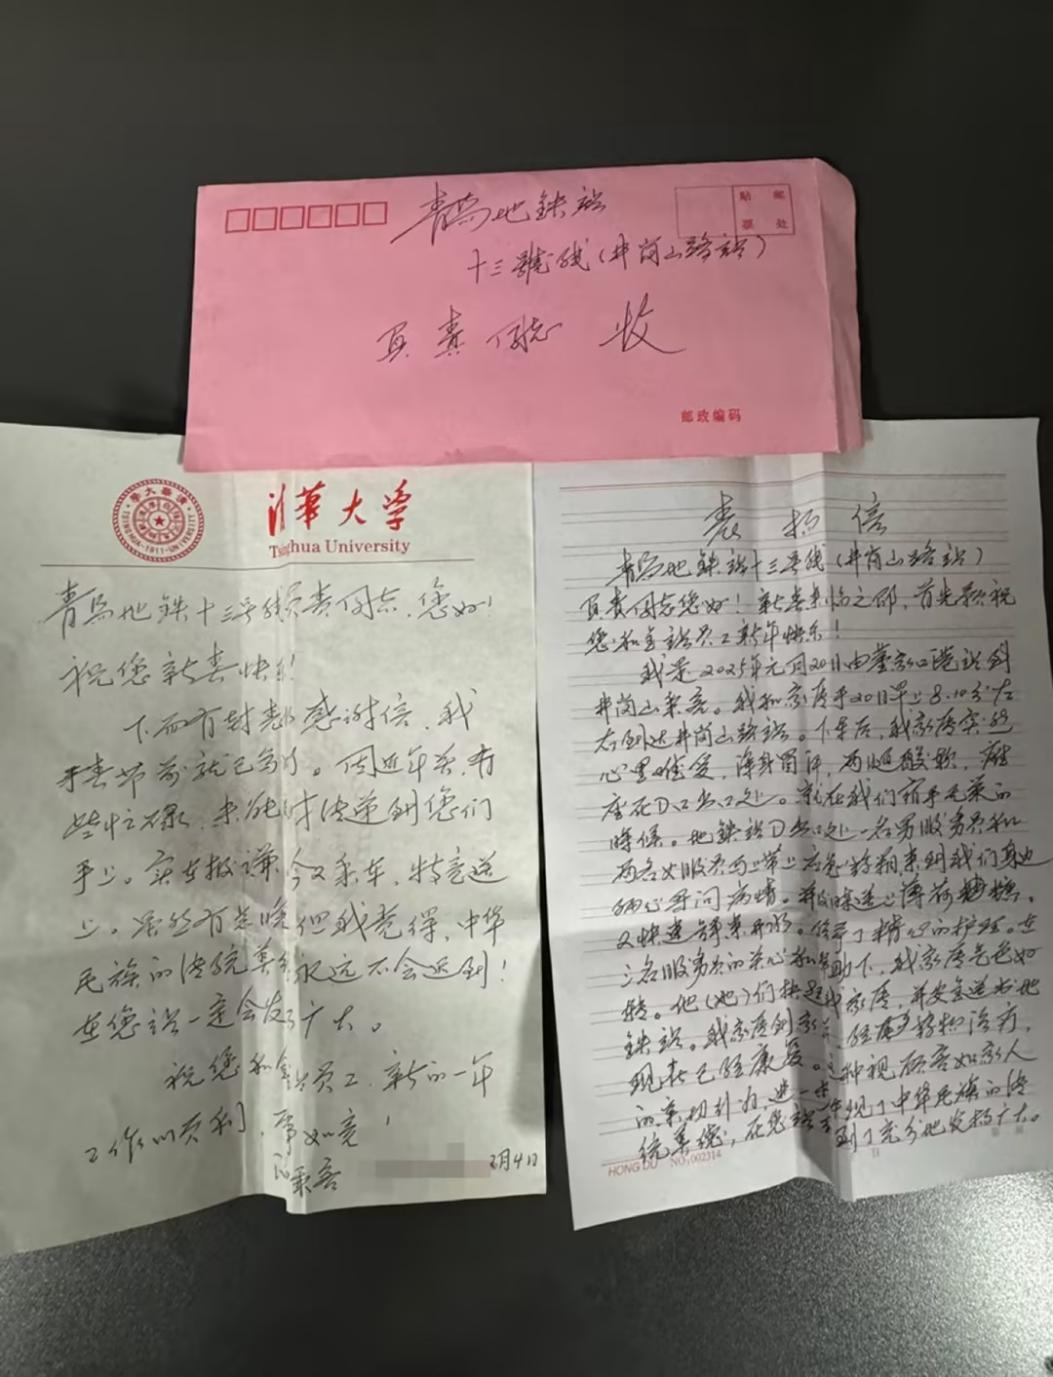 青岛地铁站
贴 邮
票 处
十三號线(井岗山路站)
负责同志 收
邮政编码
清华大学
TSINGHUA-1911-UNIVERSITY
清华大学
Tsinghua University
青岛地铁十三号线负责同志,您好!
祝您新春快乐!
下面有封感谢信,我
于春节前就已写了。因近年关,有
些忙碌,未能及时传递到您们
手上。实在抱谦,今又乘车,特意送
上。虽然有些晚,但我觉得,中华
民族的传统美德永远不会迟到!
在您站一定会发扬广大。
祝您和全站员工,新的一年
工作顺利,事如意!
乘客 2月4日
表扬信
青岛地铁站十三号线(井岗山路站)
负责同志您好!新春来临之即,首先预祝
您和全站员工新年快乐!
我是2025年元月20日由董家口港站到
井岗山路。我和家属于20日早上8.10分左
右到达井岗山路站。下车后,我家属突然
心里难受,浑身冒汗,两腿酸软,瘫
座在D口出口处。就在我们束手无策的
时候。地铁站D出口处一名男服务员和
两名女服务员马上带上应急药箱来到我们身边
细心寻问病情。并让喝上薄荷糖,
又快速拿来开水。给予了精心的护理。在
三名服务员的关心和帮助下,我家属气色好
转。他(她)们扶起我家属,并安全送出地
铁站。我家属到家后,经医药物治疗,
现在已经康复。这种视顾客如家人
的亲切行为,进一步体现了中华民族的传
统美德,在您站得到了充分地发扬广大。
HONG DU NO:002314